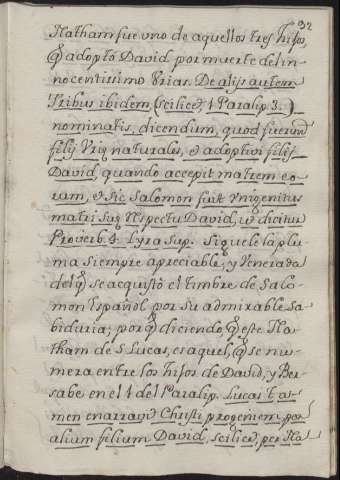 32
Natham fue vno de aquellos tres hijos,
q̃ adoptò David por muerte del in-
nocentissimo Vrias. De alijs autem
Tribus ibidem (scilicet 1 Paralip. 3.)
nominatis, dicendum, quod fuerunt
filij Vriæ naturales, et adoptivi filij
David, quando accepit matrem eo-
rum, et sic Salomon fuit vnigenitus
matri suæ respectu David, vt dicitur
Proverb. 4. Lyra sup. Siguele la plu-
ma siempre apreciable, y Venerada
del q̃ se acquistò el timbre de Salo-
mon Español por su admirable sa-
biduria; por q̃ diciendo, q̃ este Na-
tham de S. Lucas, es aquel, q̃ se nu-
mera entre los hijos de David, y Ber-
sabe en el 1 del Paralip. Lucas ta-
men enarravit Christi progeniem per
alium filium David, scilicet, per Na-